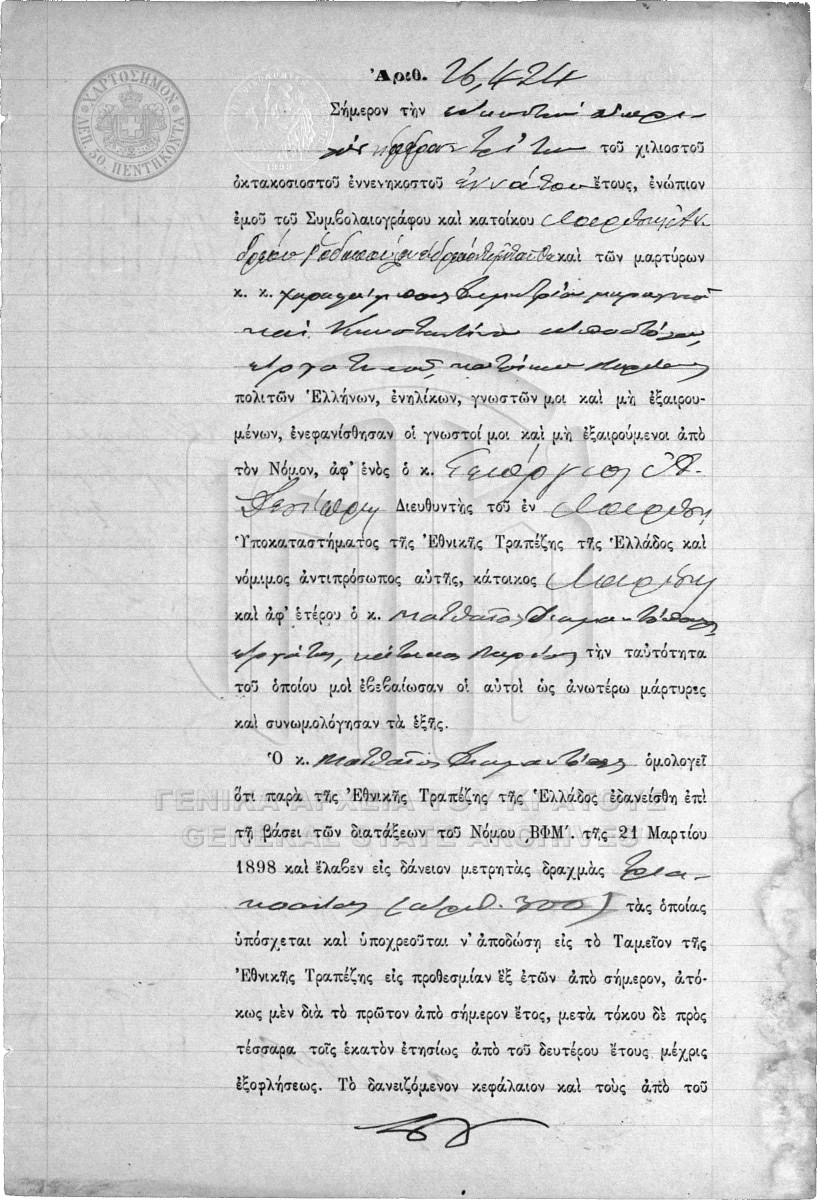 ΧΑΡΤΟΣΗΜΟΝ
ΛΕΠ. 50. ΠΕΝΤΗΚΟΝΤΑ
1898
Ἀριθ. 26,424
Σήμερον τὴν
τρίτην τοῦ χιλιοστοῦ
ὀκτακοσιοστοῦ ἐννενηκοστοῦ ἐννάτου ἔτους, ἐνώπιον
ἐμοῦ τοῦ Συμβολαιογράφου καὶ κατοίκου Λαρίσης Ἀν
καὶ τῶν μαρτύρων
κ. κ. Δημητρίου
καὶ Κωνσταντίνου Ἀποστόλου,
κατοίκων Λαρίσης
πολιτῶν Ἑλλήνων, ἐνηλίκων, γνωστῶν μοι καὶ μὴ ἐξαιρου-
μένων, ἐνεφανίσθησαν οἱ γνωστοί μοι καὶ μὴ ἐξαιρούμενοι ἀπὸ
τὸν Νόμον, ἀφ' ἑνὸς ὁ κ. Γεώργιος Ἀ.
Διευθυντὴς τοῦ ἐν Λαρίσῃ
Ὑποκαταστήματος τῆς Ἐθνικῆς Τραπέζης τῆς Ἑλλάδος καὶ
νόμιμος ἀντιπρόσωπος αὐτῆς, κάτοικος Λαρίσης
καὶ ἀφ' ἑτέρου ὁ κ. Ματθαῖος
ἐργάτης, κάτοικος Λαρίσης τὴν ταὐτότητα
τοῦ ὁποίου μοὶ ἐβεβαίωσαν οἱ αὐτοὶ ὡς ἀνωτέρω μάρτυρες
καὶ συνωμολόγησαν τὰ ἑξῆς.
Ὁ κ. Ματθαῖος ὁμολογεῖ
ὅτι παρὰ τῆς Ἐθνικῆς Τραπέζης τῆς Ἑλλάδος ἐδανείσθη ἐπὶ
ΓΕΝΙΚΑ ΑΡΧΕΙΑ ΤΟΥ ΚΡΑΤΟΥΣ
τῇ βάσει τῶν διατάξεων τοῦ Νόμου ΒΦΜ΄. τῆς 21 Μαρτίου
GENERAL STATE ARCHIVES
1898 καὶ ἔλαβεν εἰς δάνειον μετρητὰς δραχμὰς τρια-
κοσίας (ἀριθ. 300) τὰς ὁποίας
ὑπόσχεται καὶ ὑποχρεοῦται ν' ἀποδώσῃ εἰς τὸ Ταμεῖον τῆς
Ἐθνικῆς Τραπέζης εἰς προθεσμίαν ἓξ ἐτῶν ἀπὸ σήμερον, ἀτό-
κως μὲν διὰ τὸ πρῶτον ἀπὸ σήμερον ἔτος, μετὰ τόκου δὲ πρὸς
τέσσαρα τοῖς ἑκατὸν ἐτησίως ἀπὸ τοῦ δευτέρου ἔτους μέχρις
ἐξοφλήσεως. Τὸ δανειζόμενον κεφάλαιον καὶ τοὺς ἀπὸ τοῦ